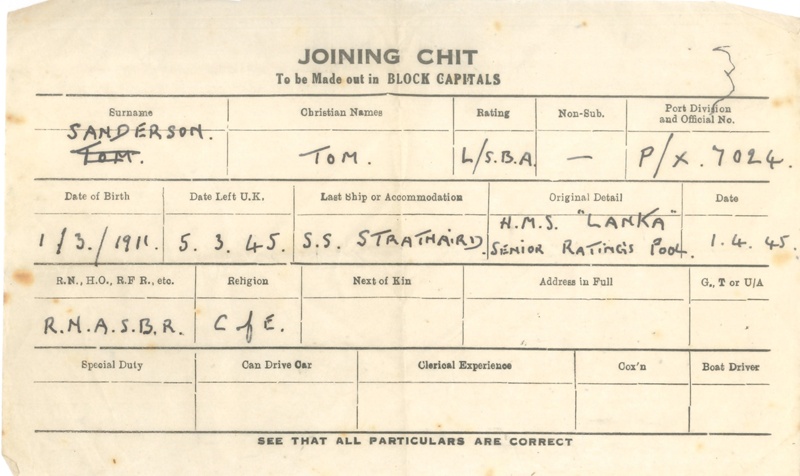 JOINING CHIT
To be Made out in BLOCK CAPITALS
Surname Christian Names Rating Non-Sub. Port Division and Official No.
SANDERSON.
TOM. TOM. L/S.B.A. — P/X. 7024.
Date of Birth Date Left U.K. Last Ship or Accommodation Original Detail Date
1/3./1911. 5. 3. 45. S.S. STRATHAIRD H.M.S. "LANKA" SENIOR RATINGS POOL. 1. 4. 45.
R.N., H.O., R.F R., etc. Religion Next of Kin Address in Full G., T or U/A
R.N.A.S.B.R. C of E.
Special Duty Can Drive Car Clerical Experience Cox'n Boat Driver
SEE THAT ALL PARTICULARS ARE CORRECT